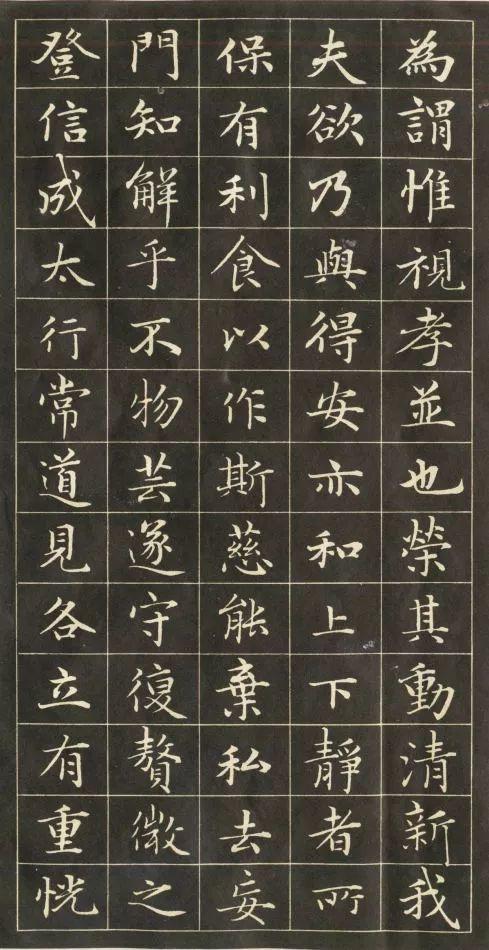 為謂惟視孝並也榮其動清新我
夫欲乃與得安亦和上下靜者所
保有利食以作斯慈能棄私去妄
門知解乎不物芸遂守復贅微之
登信成太行常道見各立有重恍